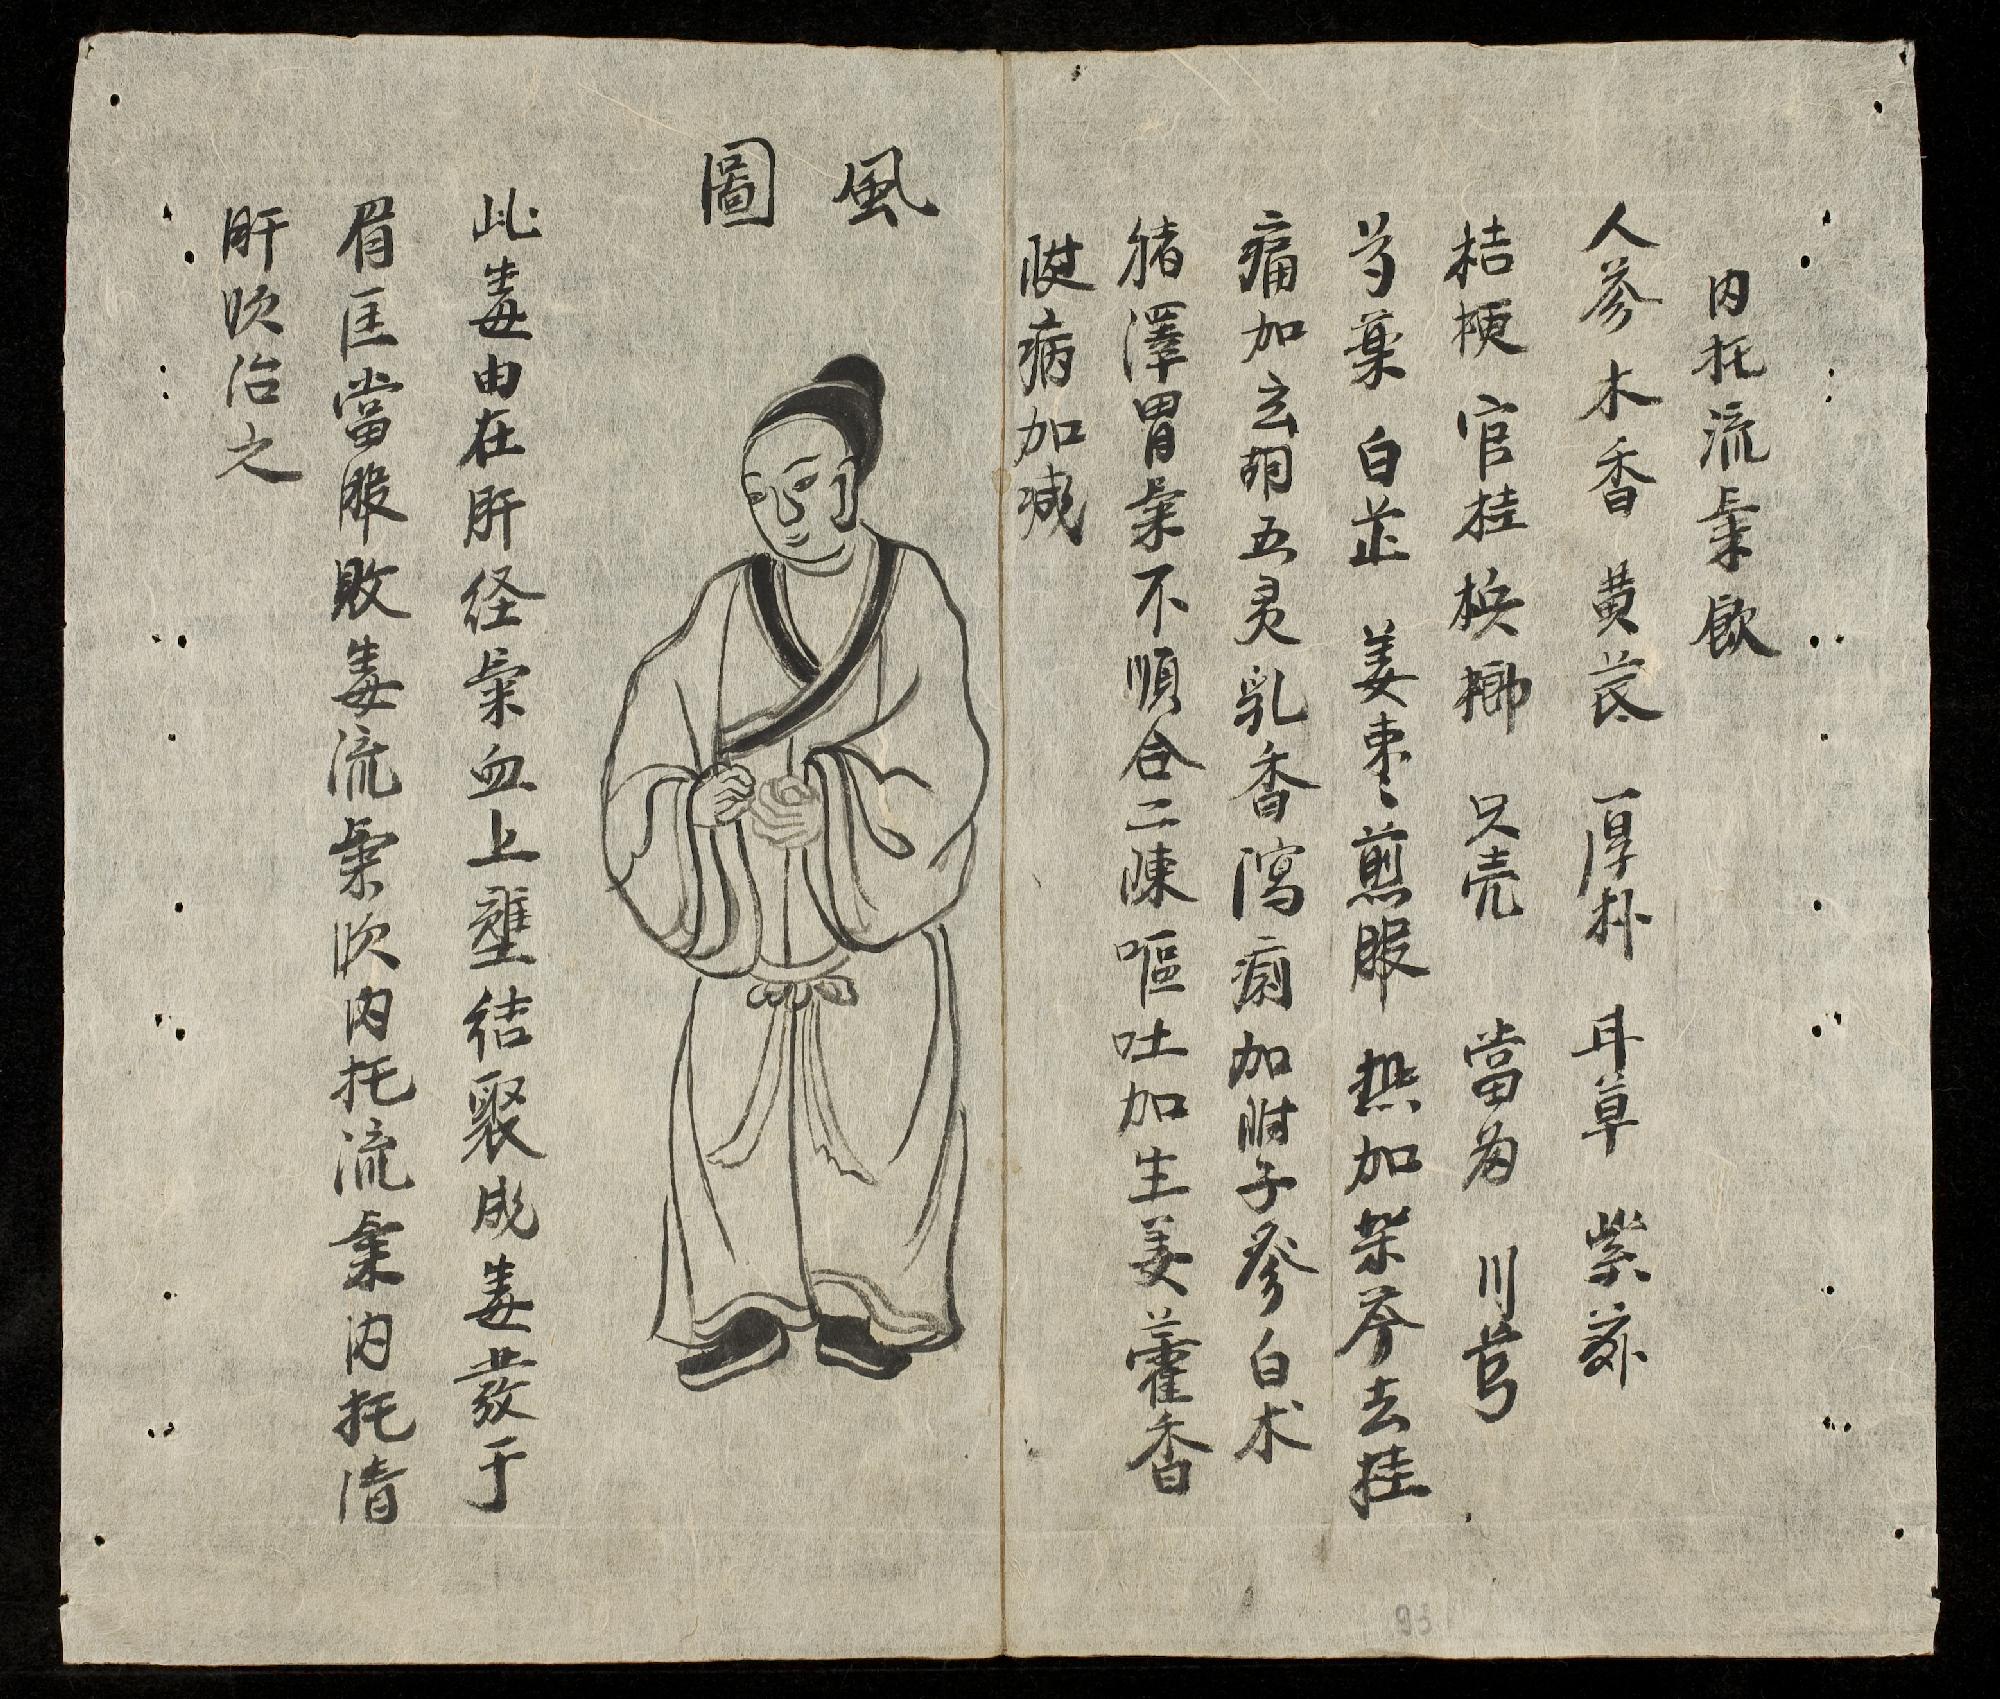 内托流氣飲
人參木香 黄芪 厚朴 甘草 紫苏
桔梗 官桂 梹榔 只壳 當為 川芎
芍薬 白芷 姜枣煎服 热加柴芩去桂
痛加玄胡五灵乳香瀉痢加附子參白术
豬澤胃氣不順合二陳嘔吐加生姜藿香
随病加减
風
圖
此毒由在肝経氣血上壅结聚成毒發于
眉匡當服敗毒流氣次内托流氣内托清
肝次治之
93